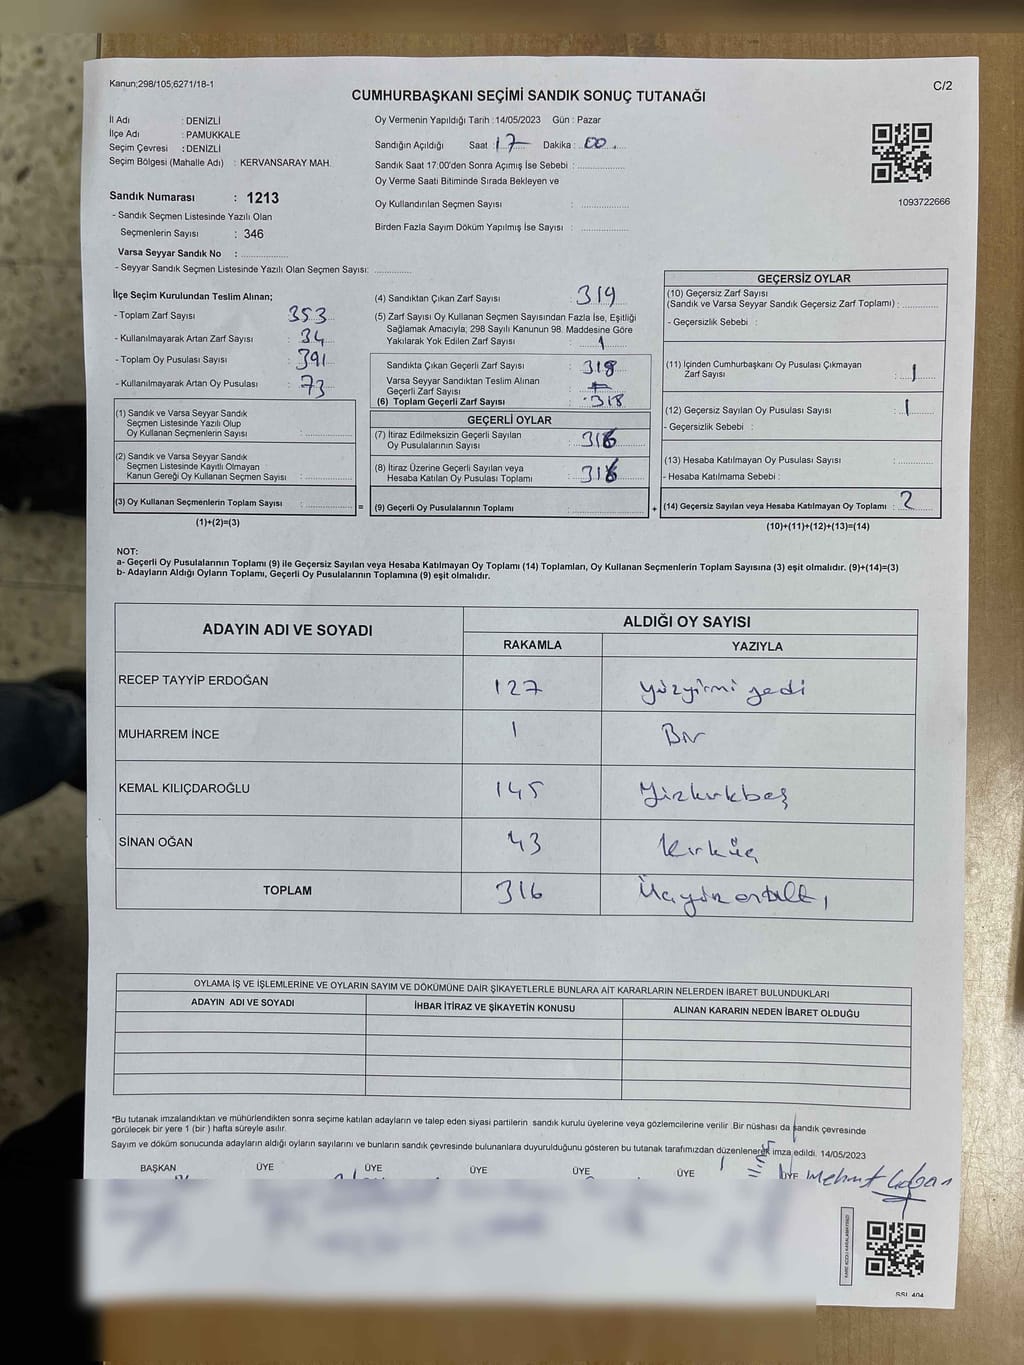 Kanun;298/105;6271/18-1
C/2
CUMHURBAŞKANI SEÇİMİ SANDIK SONUÇ TUTANAĞI
İl Adı : DENİZLİ
İlçe Adı : PAMUKKALE
Seçim Çevresi : DENİZLİ
Seçim Bölgesi (Mahalle Adı) : KERVANSARAY MAH.
Sandık Numarası : 1213
- Sandık Seçmen Listesinde Yazılı Olan
Seçmenlerin Sayısı : 346
Varsa Seyyar Sandık No : ................
- Seyyar Sandık Seçmen Listesinde Yazılı Olan Seçmen Sayısı: .............
Oy Vermenin Yapıldığı Tarih : 14/05/2023 Gün : Pazar
Sandığın Açıldığı Saat : 17 Dakika : 00
Sandık Saat 17:00'den Sonra Açımış İse Sebebi : ................
Oy Verme Saati Bitiminde Sırada Bekleyen ve
Oy Kullandırılan Seçmen Sayısı : ................
Birden Fazla Sayım Döküm Yapılmış İse Sayısı : ................
1093722666
İlçe Seçim Kurulundan Teslim Alınan;
- Toplam Zarf Sayısı : 353
- Kullanılmayarak Artan Zarf Sayısı : 34
- Toplam Oy Pusulası Sayısı : 391
- Kullanılmayarak Artan Oy Pusulası : 73
(1) Sandık ve Varsa Seyyar Sandık
Seçmen Listesinde Yazılı Olup
Oy Kullanan Seçmenlerin Sayısı : ................
(2) Sandık ve Varsa Seyyar Sandık
Seçmen Listesinde Kayıtlı Olmayan
Kanun Gereği Oy Kullanan Seçmen Sayısı : ................
(3) Oy Kullanan Seçmenlerin Toplam Sayısı : ................ =
(1)+(2)=(3)
(4) Sandıktan Çıkan Zarf Sayısı : 319
(5) Zarf Sayısı Oy Kullanan Seçmen Sayısından Fazla İse, Eşitliği
Sağlamak Amacıyla; 298 Sayılı Kanunun 98. Maddesine Göre
Yakılarak Yok Edilen Zarf Sayısı : 1
Sandıkta Çıkan Geçerli Zarf Sayısı : 318
Varsa Seyyar Sandıktan Teslim Alınan
Geçerli Zarf Sayısı :
(6) Toplam Geçerli Zarf Sayısı : 318
GEÇERLİ OYLAR
(7) İtiraz Edilmeksizin Geçerli Sayılan
Oy Pusulalarının Sayısı : 316
(8) İtiraz Üzerine Geçerli Sayılan veya
Hesaba Katılan Oy Pusulası Toplamı : 316
(9) Geçerli Oy Pusulalarının Toplamı : ................ +
GEÇERSİZ OYLAR
(10) Geçersiz Zarf Sayısı
(Sandık ve Varsa Seyyar Sandık Geçersiz Zarf Toplamı) : ............
- Geçersizlik Sebebi :
(11) İçinden Cumhurbaşkanı Oy Pusulası Çıkmayan
Zarf Sayısı : 1
(12) Geçersiz Sayılan Oy Pusulası Sayısı : 1
- Geçersizlik Sebebi :
(13) Hesaba Katılmayan Oy Pusulası Sayısı : ............
- Hesaba Katılmama Sebebi :
(14) Geçersiz Sayılan veya Hesaba Katılmayan Oy Toplamı : 2
(10)+(11)+(12)+(13)=(14)
NOT:
a- Geçerli Oy Pusulalarının Toplamı (9) ile Geçersiz Sayılan veya Hesaba Katılmayan Oy Toplamı (14) Toplamları, Oy Kullanan Seçmenlerin Toplam Sayısına (3) eşit olmalıdır. (9)+(14)=(3)
b- Adayların Aldığı Oyların Toplamı, Geçerli Oy Pusulalarının Toplamına (9) eşit olmalıdır.
ADAYIN ADI VE SOYADI ALDIĞI OY SAYISI
RAKAMLA YAZIYLA
RECEP TAYYİP ERDOĞAN 127 yüzyirmi yedi
MUHARREM İNCE 1 Bir
KEMAL KILIÇDAROĞLU 145 Yüzkırkbeş
SİNAN OĞAN 43 Kırküç
TOPLAM 316 Üçyüzonaltı
OYLAMA İŞ VE İŞLEMLERİNE VE OYLARIN SAYIM VE DÖKÜMÜNE DAİR ŞİKAYETLERLE BUNLARA AİT KARARLARIN NELERDEN İBARET BULUNDUKLARI
ADAYIN ADI VE SOYADI İHBAR İTİRAZ VE ŞİKAYETİN KONUSU ALINAN KARARIN NEDEN İBARET OLDUĞU
*Bu tutanak imzalandıktan ve mühürlendikten sonra seçime katılan adayların ve talep eden siyasi partilerin sandık kurulu üyelerine veya gözlemcilerine verilir .Bir nüshası da sandık çevresinde
görülecek bir yere 1 (bir ) hafta süreyle asılır.
Sayım ve döküm sonucunda adayların aldığı oyların sayılarını ve bunların sandık çevresinde bulunanlara duyurulduğunu gösteren bu tutanak tarafımızdan düzenlenerek imza edildi. 14/05/2023
BAŞKAN ÜYE ÜYE ÜYE ÜYE ÜYE ÜYE